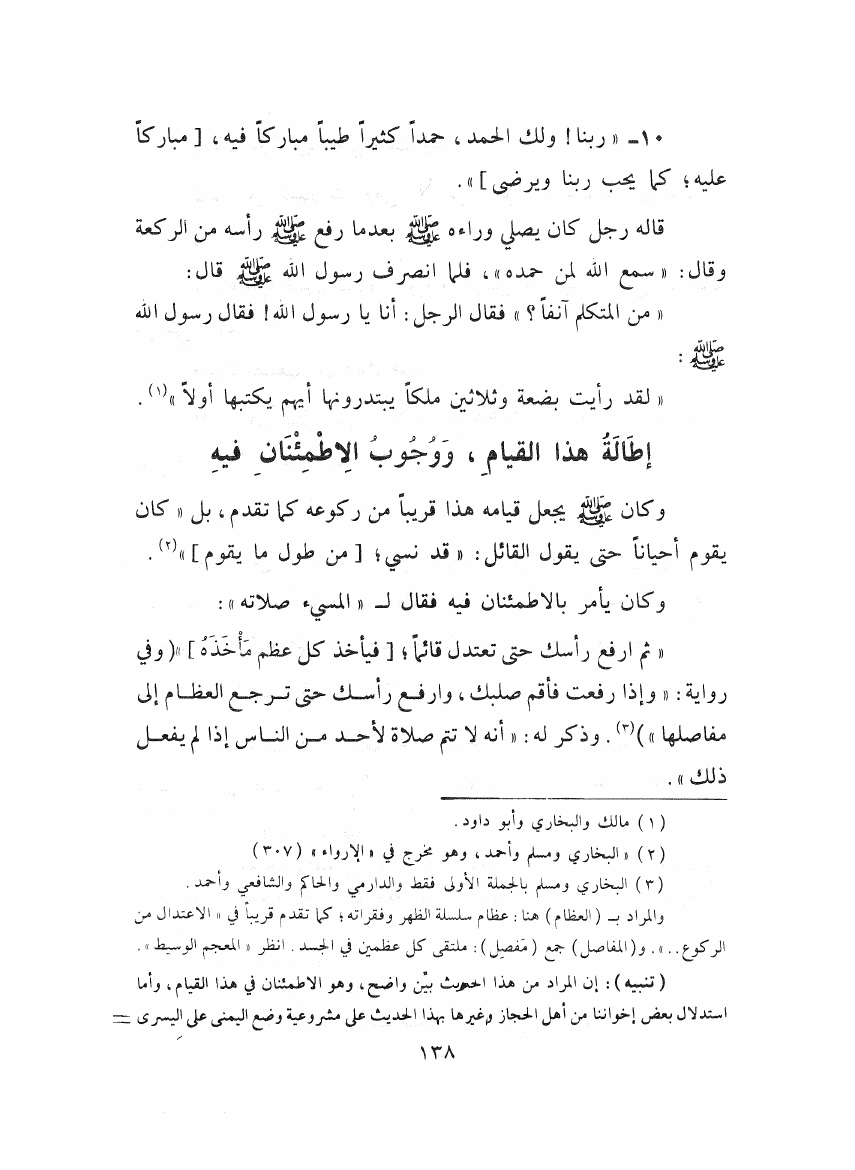 ١٠ـ « ربنا ! ولك الحمد ، حمداً كثيراً طيباً مباركاً فيه ، [ مباركاً
عليه ؛ كما يحب ربنا ويرضى ] » .
قاله رجل كان يصلي وراءه ﷺ بعدما رفع ﷺ رأسه من الركعة
وقال : « سمع الله لمن حمده » ، فلما انصرف رسول الله ﷺ قال :
« من المتكلم آنفاً ؟ » فقال الرجل : أنا يا رسول الله ! فقال رسول الله
ﷺ :
« لقد رأيت بضعة وثلاثين ملكاً يبتدرونها أيهم يكتبها أولاً »(١) .
إطَالَةُ هذا القيامِ ، وَوُجُوبُ الِاطْمِئْنَانِ فيهِ
وكان ﷺ يجعل قيامه هذا قريباً من ركوعه كما تقدم ، بل « كان
يقوم أحياناً حتى يقول القائل : « قد نسي ؛ [ من طول ما يقوم ] »(٢) .
وكان يأمر بالاطمئنان فيه فقال لـ « المسيء صلاته » :
« ثم ارفع رأسك حتى تعتدل قائماً ؛ [ فيأخذ كل عظم مَأْخَذَهُ ] »( وفي
رواية : « وإذا رفعت فأقم صلبك ، وارفـع رأسـك حتى تـرجـع العظـام إلى
مفاصلها » )(٣) . وذكر له : « أنه لا تتم صلاة لأحـد مـن النـاس إذا لم يفعـل
ذلك » .
( ١ ) مالك والبخاري وأبو داود .
( ٢ ) « البخاري ومسلم وأحمد ، وهو مخرج في « الإرواء » ( ٣٠٧ )
( ٣ ) البخاري ومسلم بالجملة الأولى فقط والدارمي والحاكم والشافعي وأحمد .
والمراد بـ ( العظام ) هنا : عظام سلسلة الظهر وفقراته ؛ كما تقدم قريباً في « الاعتدال من
الركوع .. » . و( المفاصل ) جمع ( مَفصِل ) : ملتقى كل عظمين في الجسد . انظر « المعجم الوسيط » .
( تنبيه ) : إن المراد من هذا الحديث بيّن واضح ، وهو الاطمئنان في هذا القيام ، وأما
استدلال بعض إخواننا من أهل الحجاز وغيرها بهذا الحديث على مشروعية وضع اليمنى على اليسرى =
١٣٨